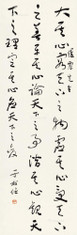 大其心容天下之物虛其心受天下
之善平其心論天下之事潛其心觀天
下之理定其心應天下之變
于右任